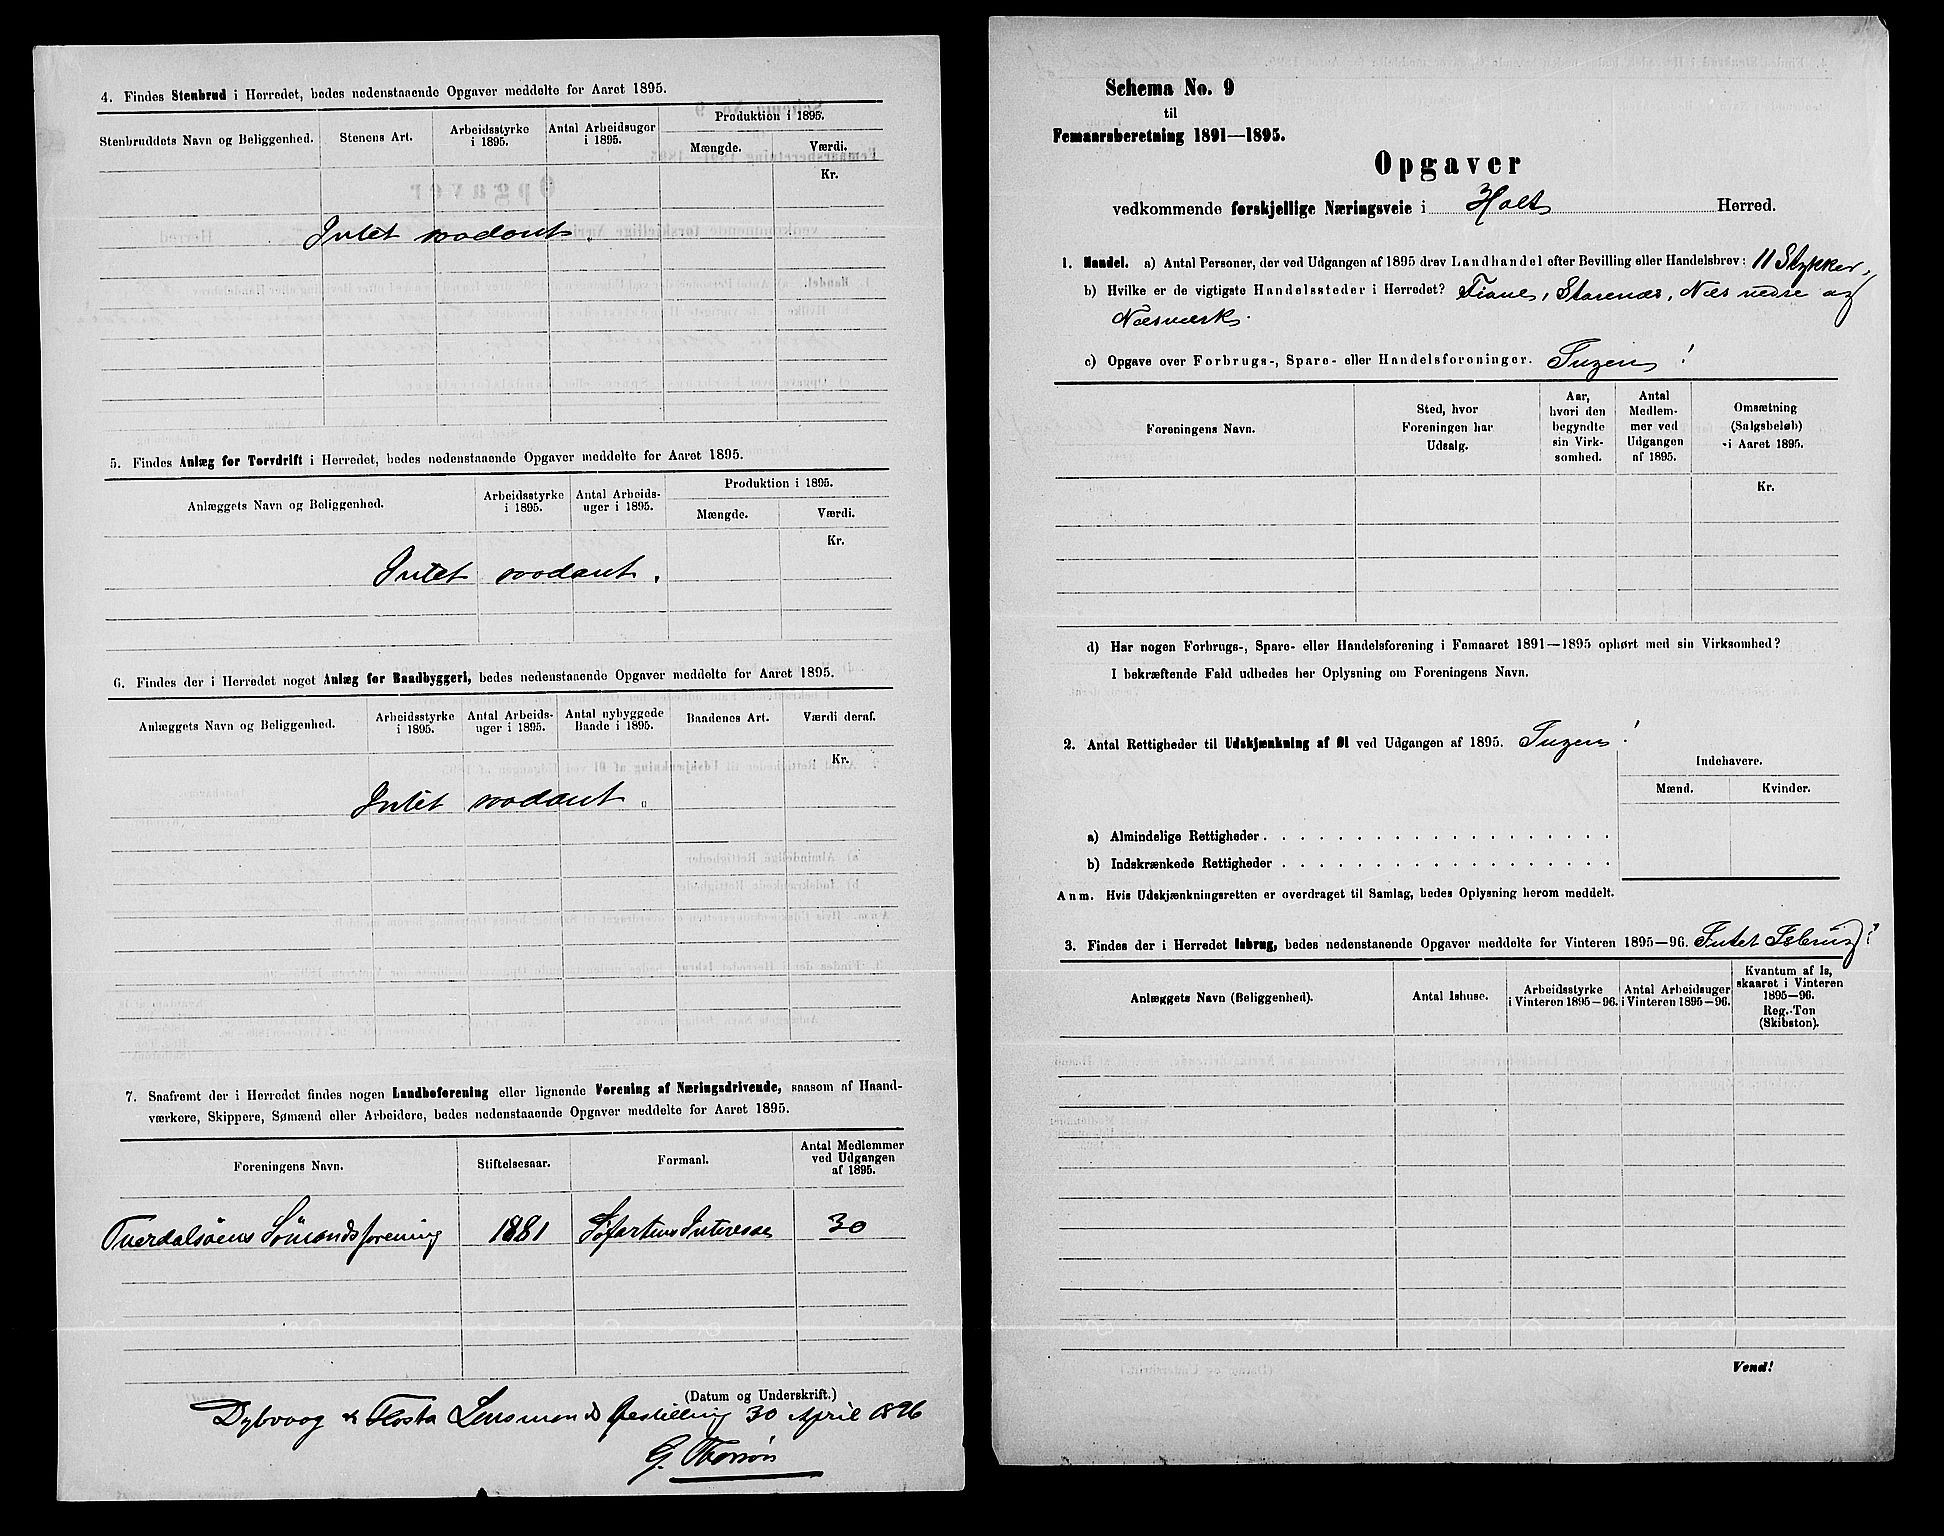 4. Findes Stenbrud i Herredet, bedes nedenstaaende Opgaver meddelte for Aaret 1895.
Stenbruddets Navn og Beliggenhed.
Stenens Art.
Arbeidsstyrke
i 1895.
Antal Arbeidsuger
i 1895.
Produktion i 1895.
Mængde.
Værdi.
Kr.
Intet
5. Findes Anlæg for Torvdrift i Herredet, bedes nedenstaaende Opgaver meddelte for Aaret 1895.
Anlæggets Navn og Beliggenhed.
Arbeidsstyrke
i 1895.
Antal Arbeids-
uger i 1895.
Produktion i 1895.
Mængde.
Værdi.
Kr.
Intet
6. Findes der i Herredet noget Anlæg for Baadbyggeri, bedes nedenstaaende Opgaver meddelte for Aaret 1895.
Anlæggets Navn og Beliggenhed.
Arbeidsstyrke
i 1895.
Antal Arbeids-
uger i 1895.
Antal nybyggede
Baade i 1895.
Baadenes Art.
Værdi deraf.
Kr.
Intet
7. Saafremt der i Herredet findes nogen Landboforening eller lignende Forening af Næringsdrivende, saasom af Haand-
værkere, Skippere, Sømænd eller Arbeidere, bedes nedenstaaende Opgaver meddelte for Aaret 1895.
Foreningens Navn.
Stiftelsesaar.
Formaal.
Antal Medlemmer
ved Udgangen
af 1895.
Tverdalsöens Sömandsforening
1881
Søfartens Interesse
30
(Datum og Underskrift.)
Dybvaag & Flosta Lensmands Bestilling 30 April 1896
G.
Schema No. 9
til
Femaarsberetning 1891—1895.
Opgaver
vedkommende forskjellige Næringsveie i Holt Herred.
1. Handel. a) Antal Personer, der ved Udgangen af 1895 drev Landhandel efter Bevilling eller Handelsbrev: 11 Stykker,
b) Hvilke er de vigtigste Handelssteder i Herredet? Fiane, Starenæs, Næs nedre og
Næsværk.
c) Opgave over Forbrugs-, Spare- eller Handelsforeninger. Ingen!
Foreningens Navn.
Sted, hvor
Foreningen har
Udsalg.
Aar,
hvori den
begyndte
sin Virk-
somhed.
Antal
Medlem-
mer ved
Udgangen
af 1895.
Omsætning
(Salgsbeløb)
i Aaret 1895.
Kr.
d) Har nogen Forbrugs-, Spare- eller Handelsforening i Femaaret 1891—1895 ophørt med sin Virksomhed?
I bekræftende Fald udbedes her Oplysning om Foreningens Navn.
2. Antal Rettigheder til Udskjænkning af Øl ved Udgangen af 1895. Ingen!
Indehavere.
Mænd.
Kvinder.
a) Almindelige Rettigheder
b) Indskrænkede Rettigheder
Anm. Hvis Udskjænkningsretten er overdraget til Samlag, bedes Oplysning herom meddelt.
3. Findes der i Herredet Isbrug, bedes nedenstaaende Opgaver meddelte for Vinteren 1895—96. Intet Isbrug!
Anlæggets Navn (Beliggenhed).
Antal Ishuse.
Arbeidsstyrke
i Vinteren 1895—96.
Antal Arbeidsuger
i Vinteren 1895—96.
Kvantum af Is,
skaaret i Vinteren
1895—96.
Reg.-Ton
(Skibston).
Vend!